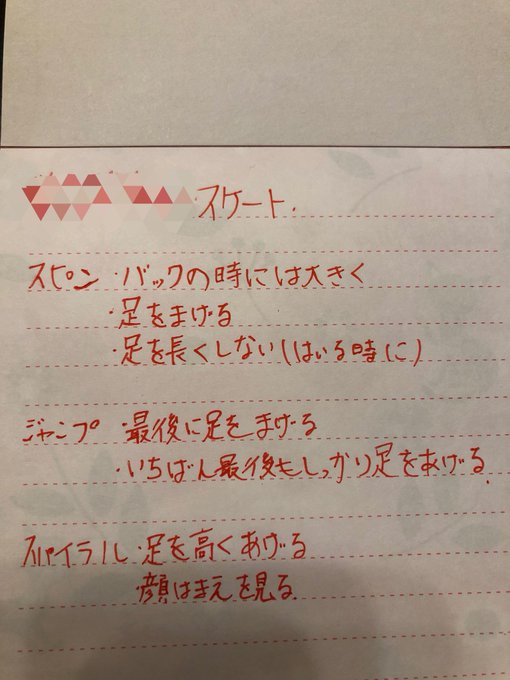 スケート.
スピン ・バックの時には大きく
・足をまげる
・足を長くしない(はいる時に)
ジャンプ ・最後に足をまげる
・いちばん最後もしっかり足をあげる.
スパイラル ・足を高くあげる
・顔はまえを見る.